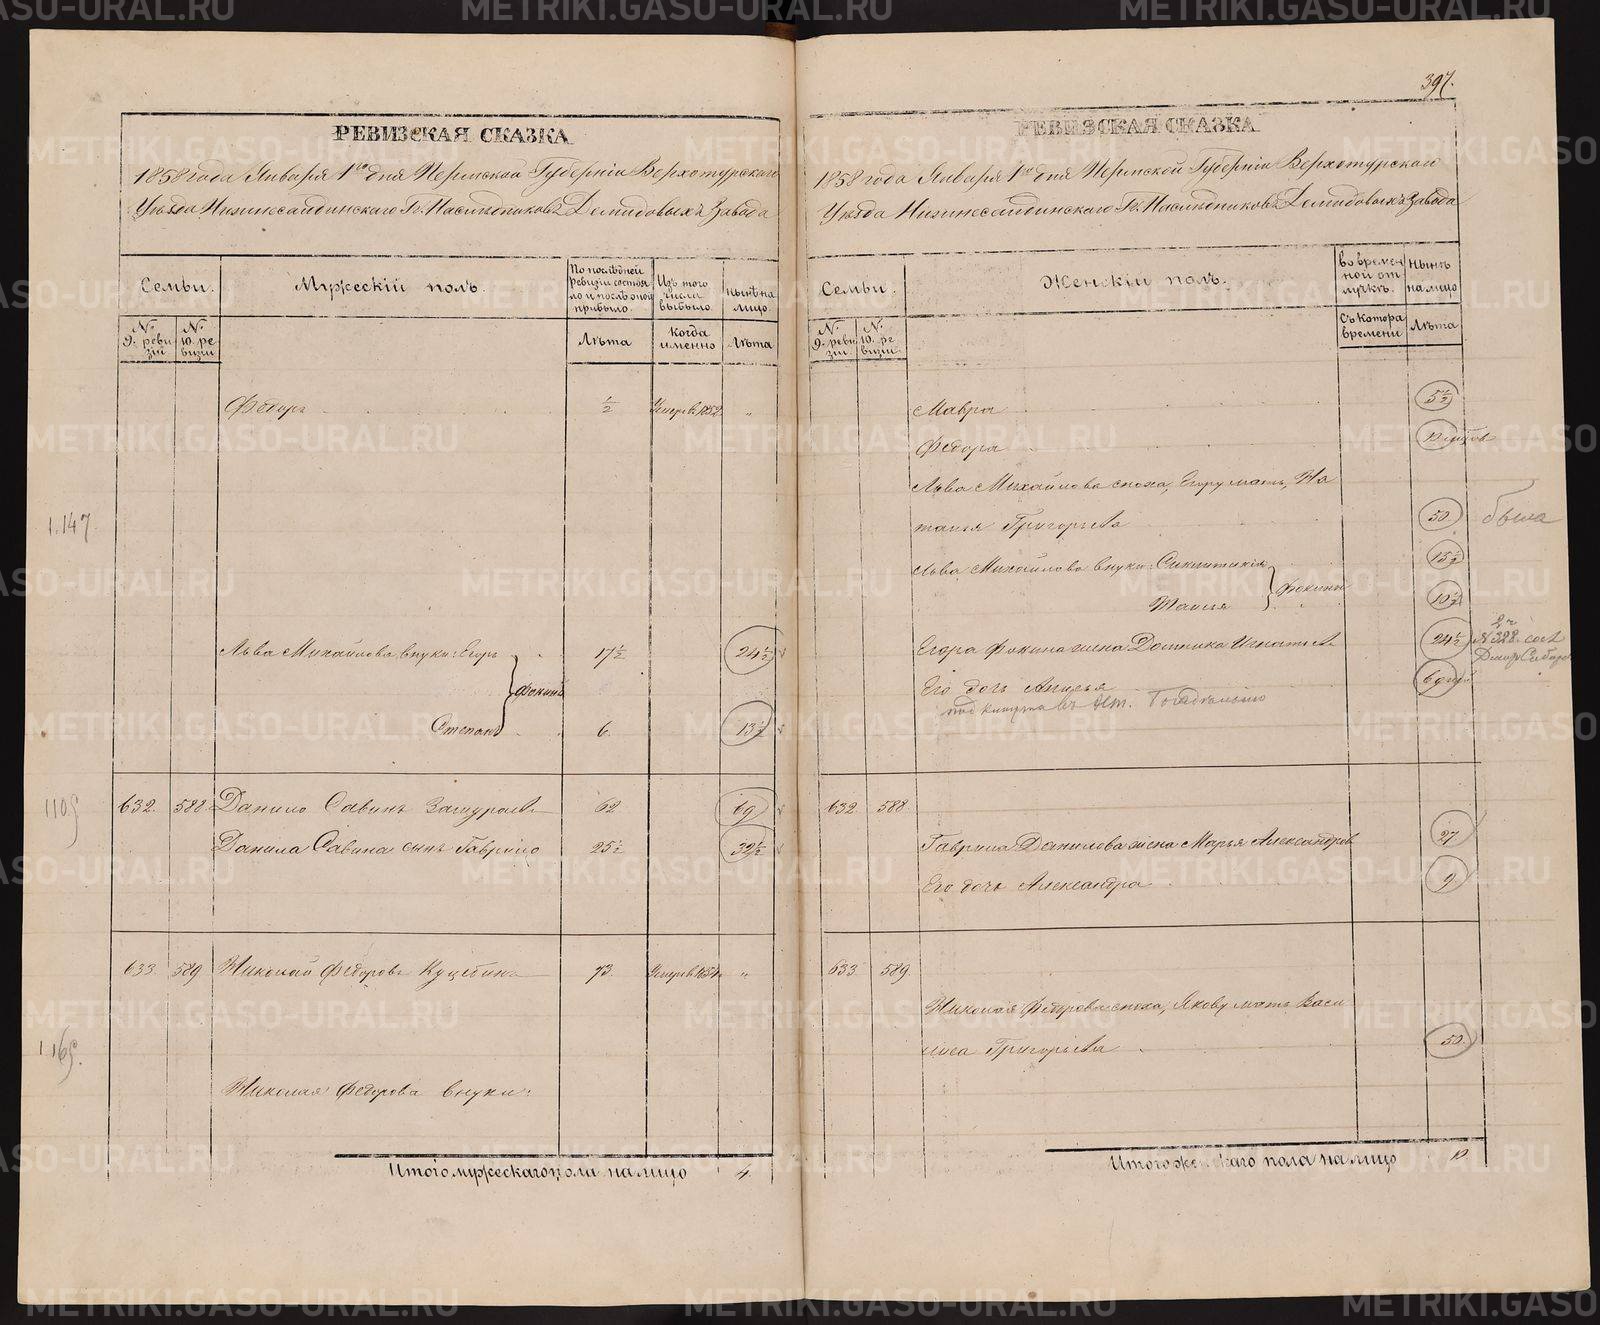 397.
РЕВИЗСКАЯ СКАЗКА
1858 года Января 1го дня Пермской Губерніи Верхотурскаго
Уѣзда Нижнесалдинскаго Гг. Наслѣдниковъ Демидовыхъ Завода
Семьи.
Мужескій полъ.
По послѣдней ревизіи состояло и послѣ оной прибыло.
Изъ того числа выбыло.
Нынѣ на лицо
№ 9. ревизіи
№ 10 ревизіи
Лѣта
когда именно
Лѣта
Ѳедоръ ½ Умеръ въ 1852 "
1.147
Льва Михайлова внуки: Егоръ 17½ 24½
Фокины
Степанъ 6. 13½
1109
632. 588. Данило Савинъ 62 69
Данила Савина сынъ Гаврило 25½ 32½
633. 589 Николай Ѳедоровъ Куцебинъ 73. Умеръ в 1854 "
1.169.
Николая Ѳедорова внуки:
Итого мужескаго пола на лицо 4.
РЕВИЗСКАЯ СКАЗКА
1858 года Января 1го дня Пермской Губерніи Верхотурскаго
Уѣзда Нижнесалдинскаго Гг. Наслѣдниковъ Демидовыхъ Завода
Семьи.
Женскій полъ.
во временной отлучкѣ.
Нынѣ на лицо
№ 9. ревизіи
№ 10. ревизіи
Съ котора времени
Лѣта
Мавра 5½
Ѳедора
Льва Михайлова сноха, Егору мать, На
талья Григорьева 50. была
Льва Михайлова внуки: Синклитикія 15½
Фокины
Таисья 10½
Егора Фокина жена Домника Игнатьев 24½
№ 328.
Его дочь Анисья
632 588
Гаврила Данилова жена Марья Александров 27
Его дочь Александра 9
633 589
Николая Ѳедорова сноха, Якову мать Васи
лиса Григорьева 50.
Итого женскаго пола на лицо 10
METRIKI.GASO-URAL.RU